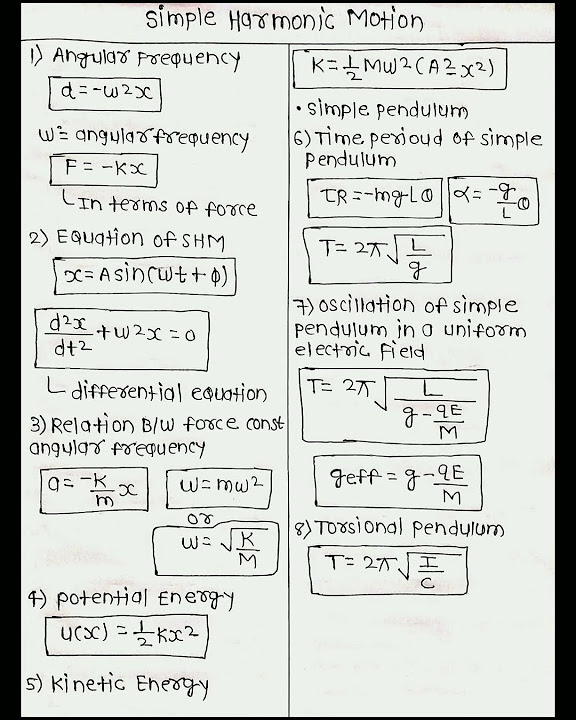 Simple Harmonic Motion
1) Angular Frequency
a = -w2x
w = angular frequency
F = -Kx
In terms of force
2) Equation of SHM
x = A sin(wt + φ)
d2x/dt2 + w2x = 0
differential equation
3) Relation B/w force const
angular frequency
a = -K/m x
w = mw2
or
w = √K/M
4) potential Energy
u(x) = 1/2 Kx2
5) Kinetic Energy
K = 1/2 Mw2 (A2 - x2)
• simple pendulum
6) Time perioud of simple
pendulum
τR = -mg-Lθ
α = -g/L θ
T = 2π √L/g
7) oscillation of simple
pendulum in a uniform
electric Field
T = 2π √L/(g - qE/M)
geff = g - qE/M
8) Torsional pendulum
T = 2π √I/C